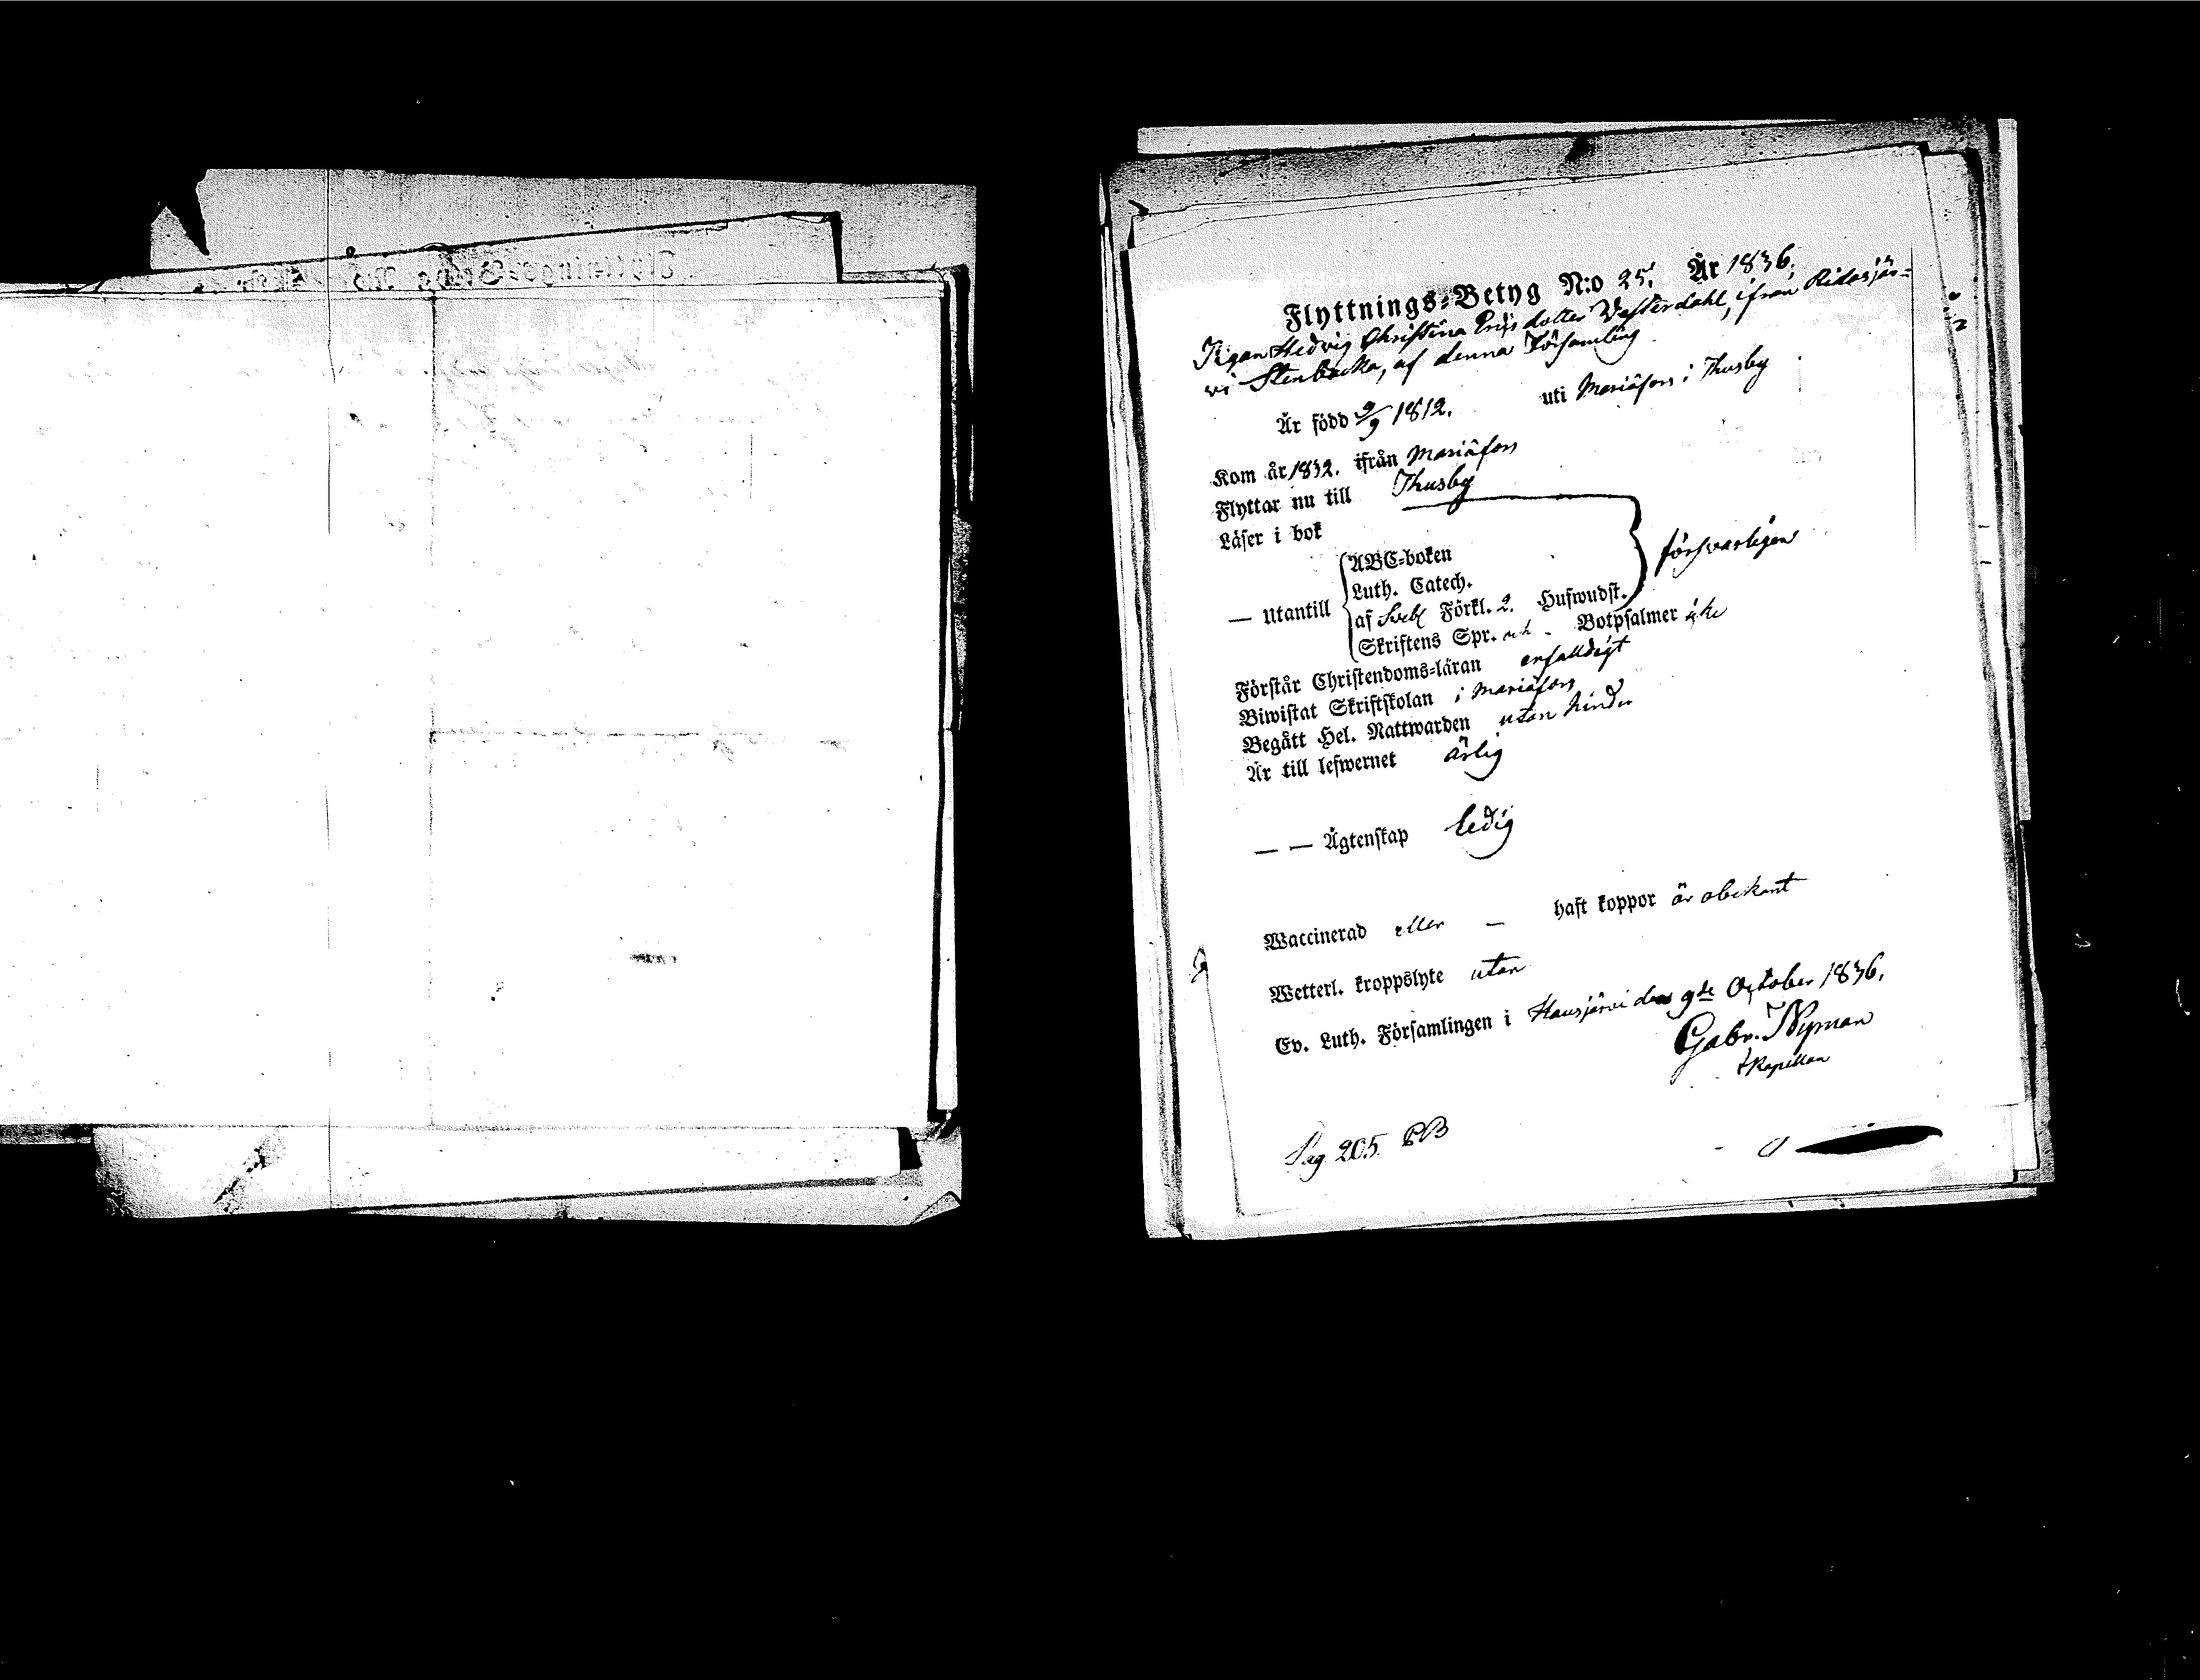 Flyttnings-Betyg N:o 25. År 1836.
Pigan Hedvig Christina Ersdotter Vesterdahl, ifrån Ridasjär-
vi Stenbacka, af denna Församling
Är född 9/9 1812. uti Mariäfors i Thusby
Kom år 1832. ifrån Mariäfors
Flyttar nu till Thusby
Läser i bok
— utantill
ABC-boken
Luth. Catech.
af Sveb Förkl. 2. Hufwudst.
försvarligen
Skriftens Spr. och - Botpsalmer icke
Förstår Christendoms-läran enfalldigt
Biwistat Skriftskolan i Mariäfors
Begått Hel. Nattwarden utan hinder
Är till lefwernet ärlig
— — Ägtenskap ledig
Waccinerad eller — haft koppor är obekant
Wetterl. kroppslyte utan
Ev. Luth. Församlingen i Hausjärvi den 9de October 1836.
Gabr. Nyman
Kapellan
Pag 205. PB